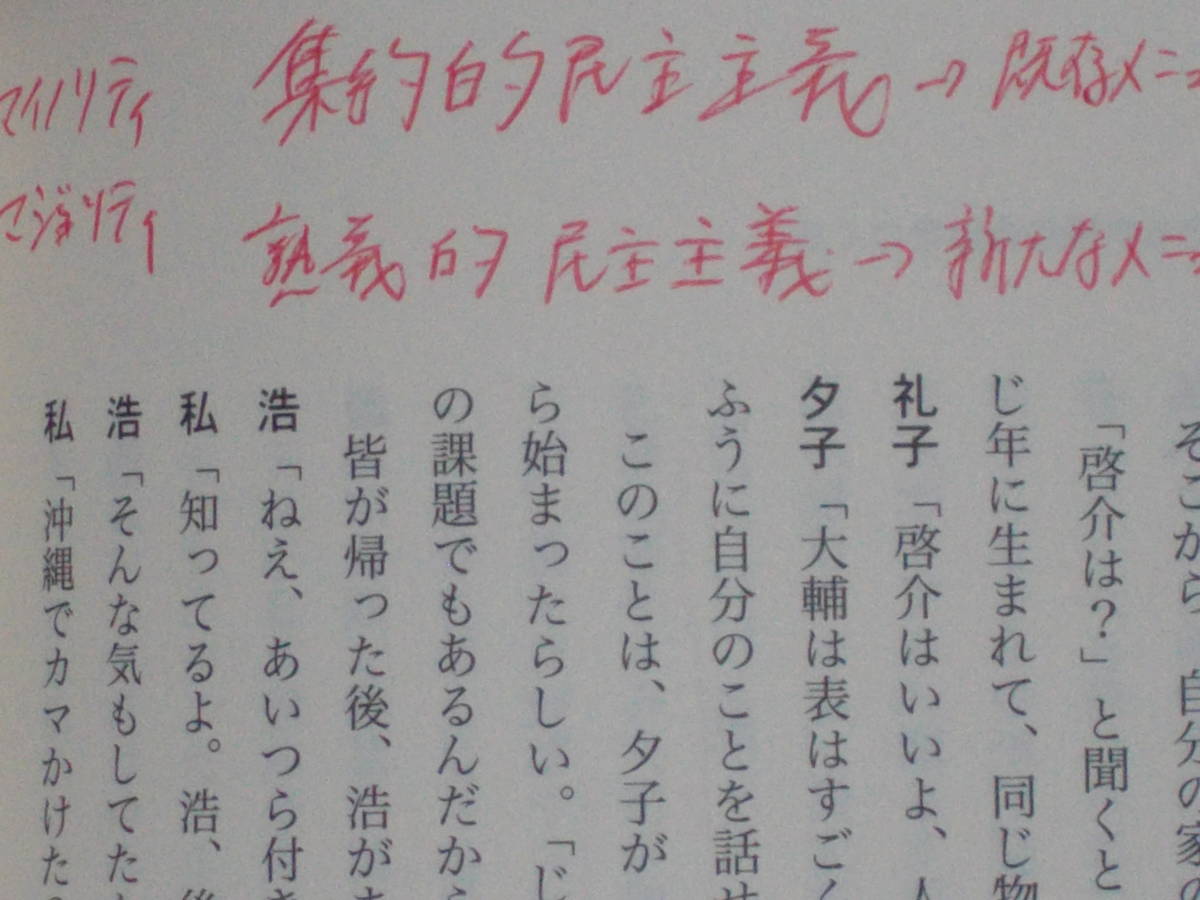 マイノリティ 集約的民主主義→既存メニュ
マジョリティ 熟義的民主主義→新たなメニュ
そこから、自分の家の
「啓介は？」と聞くと
じ年に生まれて、同じ物
礼子「啓介はいいよ、人
夕子「大輔は表はすごく
ふうに自分のことを話せ
このことは、夕子が
ら始まったらしい。「じ
の課題でもあるんだから
皆が帰った後、浩がま
浩「ねえ、あいつら付き
私「知ってるよ。浩、後
浩「そんな気もしてた
私「沖縄でカマかけた